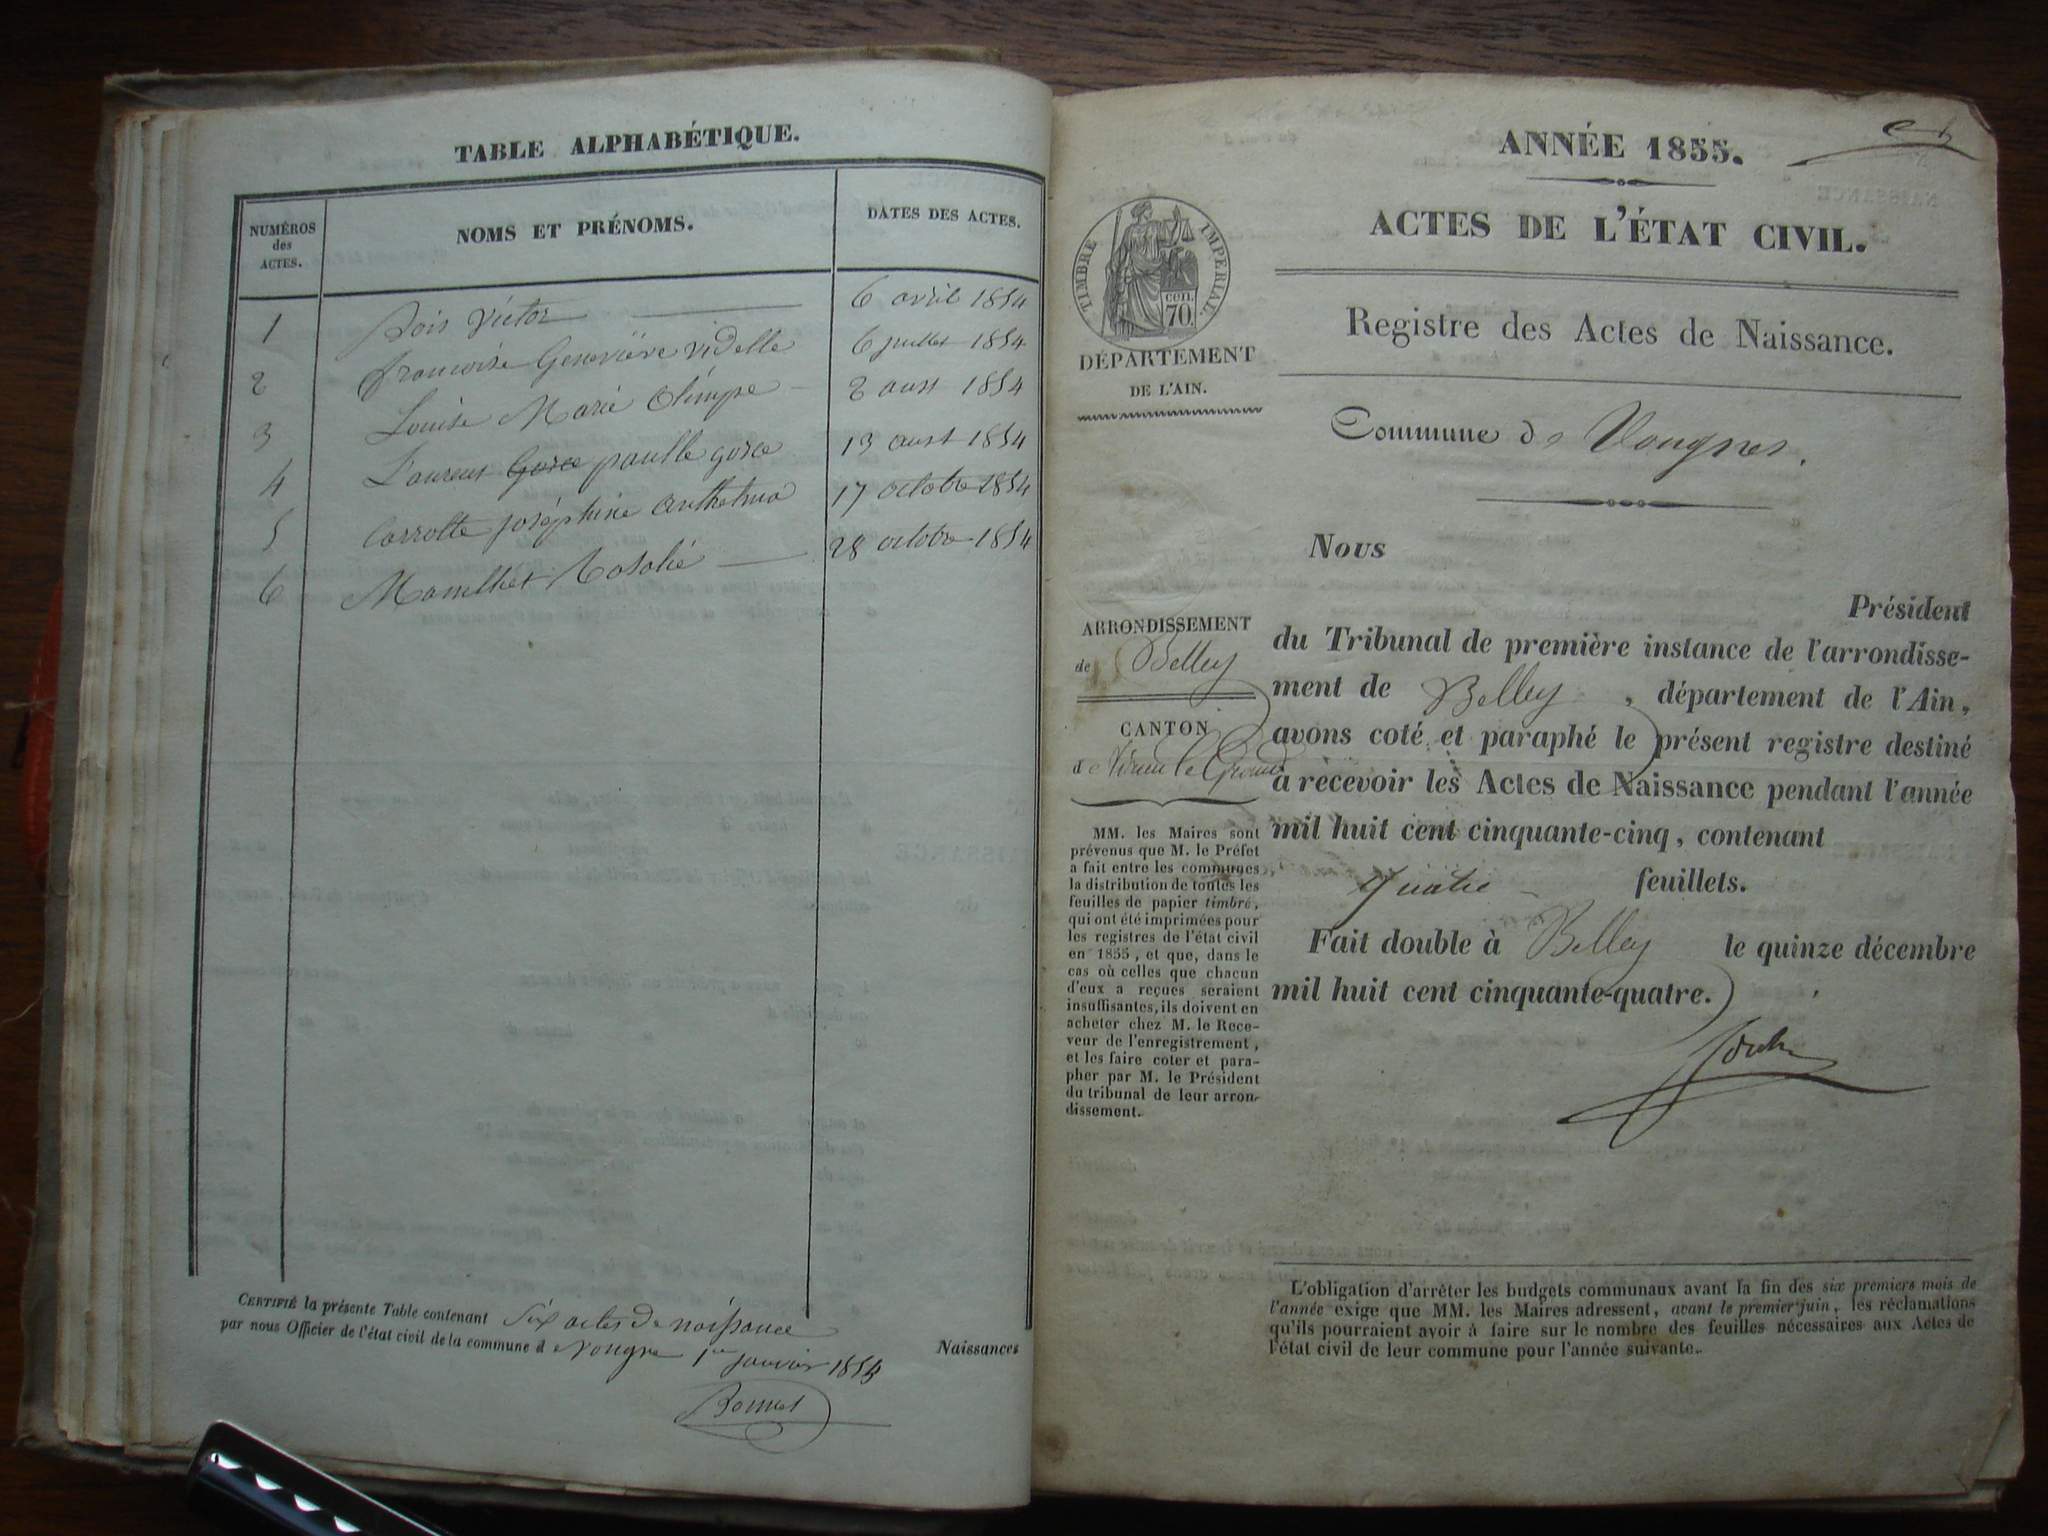 TABLE ALPHABÉTIQUE.
NUMÉROS
des
ACTES.
NOMS ET PRÉNOMS.
DATES DES ACTES.
1 Victor 6 avril 1854
2 francoise Genevieve vidette 6 juillet 1854
3 Louise Marie Olimpe 2 aust 1854
4 Laurens Gorce paulle gorce 13 aust 1854
5 Carrotte joséphine 17 octobre 1854
6 28 octobre 1854
CERTIFIÉ la présente Table contenant Six actes de naissance
Naissances
par nous Officier de l'état civil de la commune d e Vongne 1er janvier 1855
Bonnet
ANNÉE 1855.
ACTES DE L'ÉTAT CIVIL.
TIMBRE IMPERIAL.
cen.
70.
Registre des Actes de Naissance.
DÉPARTEMENT
DE L'AIN.
Commune de Vongnes.
Nous
Président
ARRONDISSEMENT
de Belley
CANTON
d
MM. les Maires sont
prévenus que M. le Préfet
a fait entre les communes
la distribution de toutes les
feuilles de papier timbré,
qui ont été imprimées pour
les registres de l'état civil
en 1855, et que, dans le
cas où celles que chacun
d'eux a reçues seraient
insuffisantes, ils doivent en
acheter chez M. le Rece-
veur de l'enregistrement,
et les faire coter et para-
pher par M. le Président
du tribunal de leur arron-
dissement.
du Tribunal de première instance de l'arrondisse-
ment de Belley, département de l'Ain,
avons coté et paraphé le présent registre destiné
à recevoir les Actes de Naissance pendant l'année
mil huit cent cinquante-cinq, contenant
quatre feuillets.
Fait double à Belley le quinze décembre
mil huit cent cinquante-quatre.
L'obligation d'arrêter les budgets communaux avant la fin des six premiers mois de
l'année exige que MM. les Maires adressent, avant le premier juin, les réclamations
qu'ils pourraient avoir à faire sur le nombre des feuilles nécessaires aux Actes de
l'état civil de leur commune pour l'année suivante.